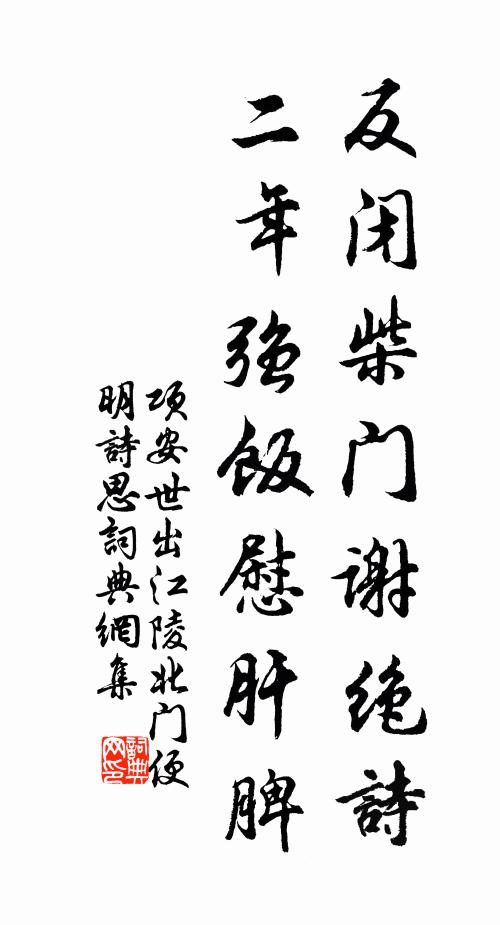 反闭柴门谢绝詩
二年強飯慰肝脾
项安世出江陵北门便
明詩思詞典網集
詞典網印